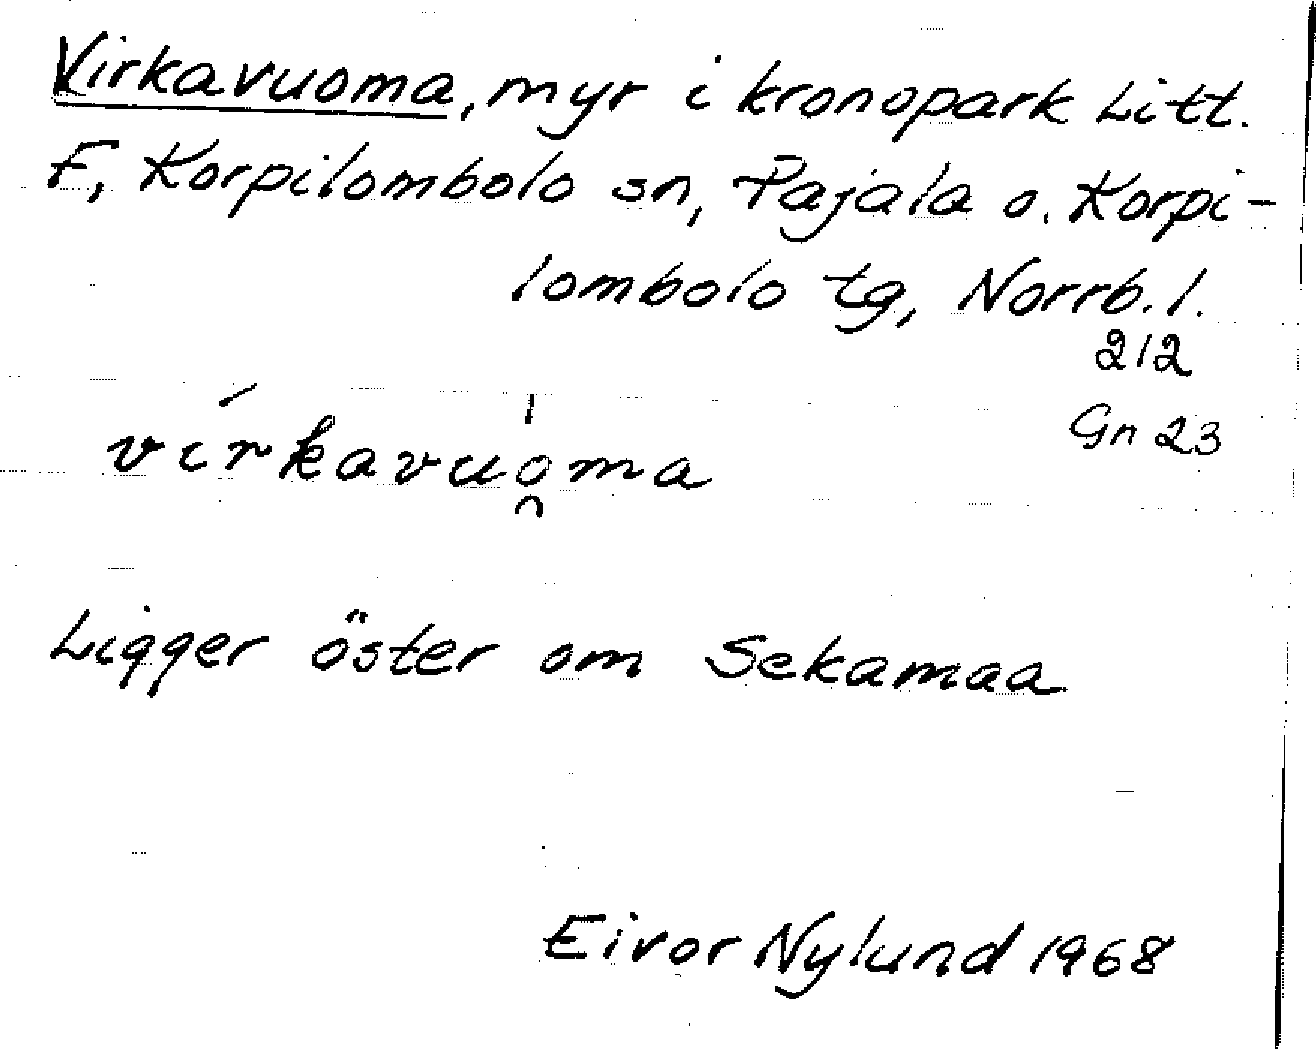 Virkavuoma, myr i kronopark Litt.
F, Korpilombolo sn, Pajala o. Korpi-
lombolo tg, Norrb. l.
212
Gn 23
vírkavuo̯ma
Ligger öster om Sekamaa
Eivor Nylund 1968